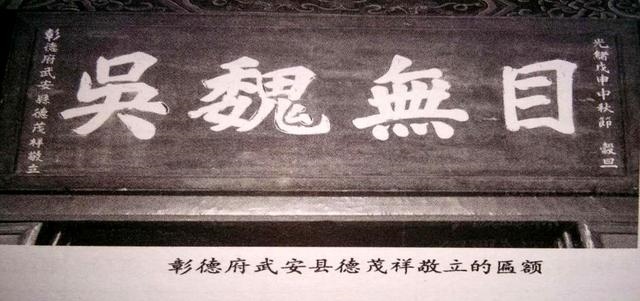 光緒戊申中秋節 穀旦
目無魏吳
彰德府武安縣德茂祥敬立
彰德府武安县德茂祥敬立的匾额